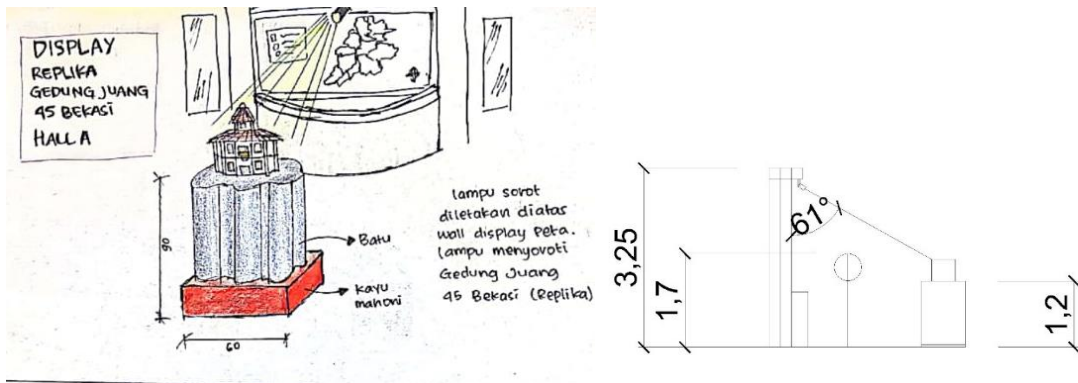 DISPLAY
REPLIKA
GEDUNG JUANG
45 BEKASI
HALL A
90
60
Batu
kayu
mahoni
lampu sorot
diletakan diatas
wall display peta.
lampu menyoroti
Gedung Juang
45 Bekasi (Replika)
3,25
1,7
61°
1,2